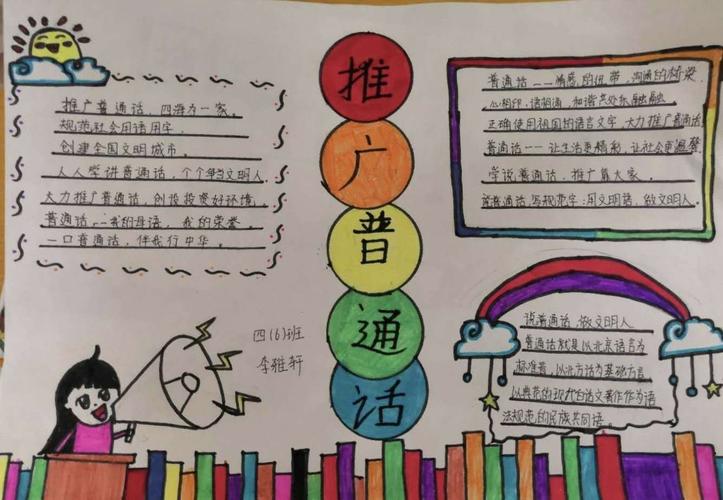 推广普通话
推广普通话，四海为一家。
规范社会用语用字，
创建全国文明城市。
人人学讲普通话，个个争当文明人
大力推广普通话，创设投资好环境。
普通话——我的母语，我的荣誉。
一口普通话，伴我行中华。
四（6）班
李雅轩
普通话——情感的纽带，沟通的桥梁，
心相印，语相通，和谐共处乐融融
正确使用祖国的语言文字，大力推广普通话
普通话——让生活更精彩，让社会更温馨
学说普通话，推广靠大家。
普通话，写规范字：用文明语，做文明人。
说普通话，做文明人
普通话就是以北京语言为
标准音，以北方话为基础方言
以典范的现代白话文著作作为语
法规范的民族共同语。